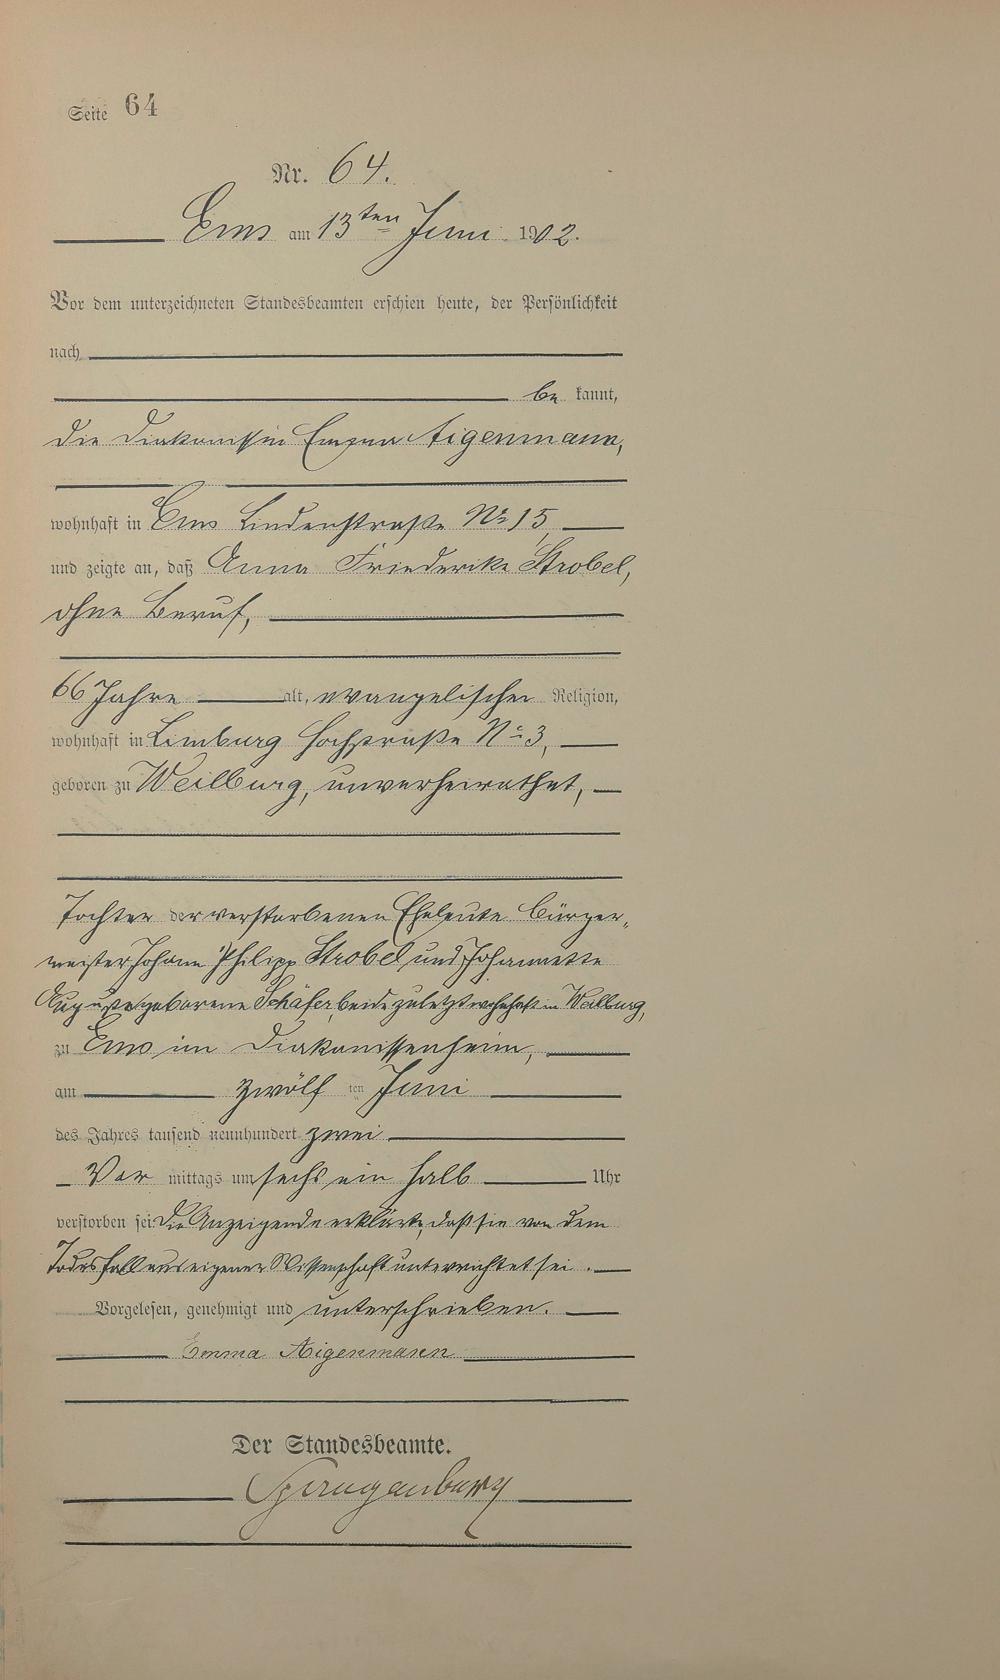 Seite 64
Nr. 64.
Ems am 13ten Juni 1902.
Vor dem unterzeichneten Standesbeamten erschien heute, der Persönlichkeit
nach
be kannt,
die Diakonissin Emma Aigenmann,
wohnhaft in Ems Lindenstraße No 15
und zeigte an, daß Anna Friederike Strobel,
ohne Beruf,
66 Jahre alt, evangelischer Religion,
wohnhaft in Limburg Hochstraße No 3,
geboren zu Weilburg, unverheirathet,
Tochter der verstorbenen Eheleute Bürger-
meister Johann Philipp Strobel und Johannette
Auguste geborene Schäfer, beide zuletzt wohnhaft in Weilburg,
zu Ems im Diakonissenheim,
am zwölf ten Juni
des Jahres tausend neunhundert zwei
Vor mittags um sechs ein halb Uhr
verstorben sei. Die Anzeigende erklärte, daß sie von dem
Todesfall aus eigener Wissenschaft unterrichtet sei.
Vorgelesen, genehmigt und unterschrieben.
Emma Aigenmann
Der Standesbeamte.